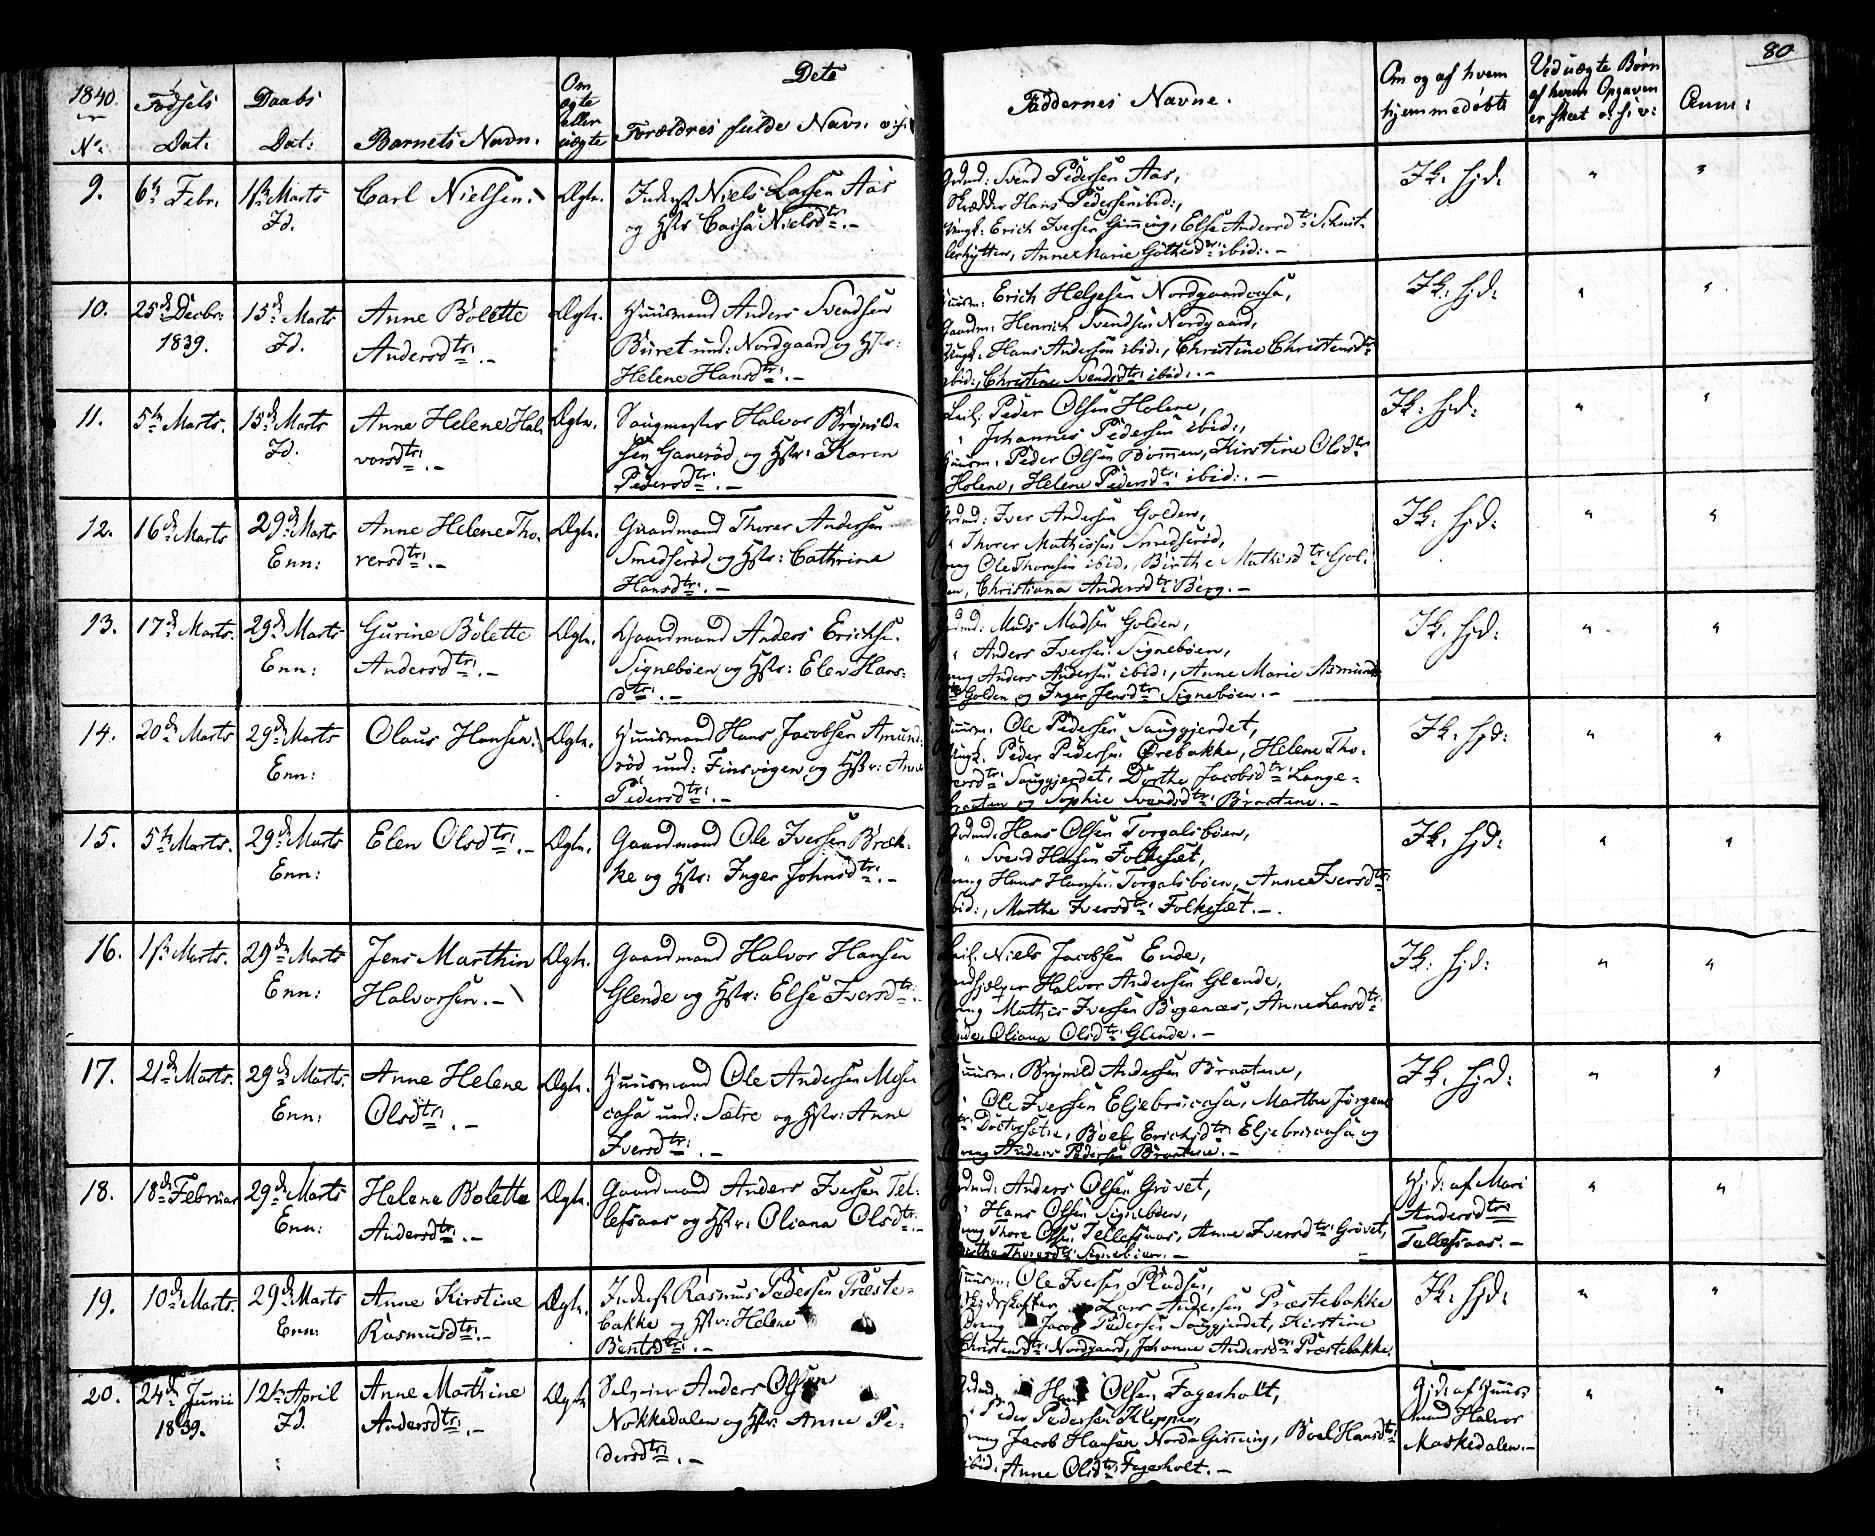 1840.
No:
Fødsels
Dat:
Daabs
Dat:
Barnets Navn.
Om
ægte
eller
uægte
Dets
Forældres fulde Navn o:s:v:
Faddernes Navne.
Om og af hvem
hjemmedøbt
Ved uægte Børn
af hvem Opgaven
er skeet o:s:v:
Anm:
80
9.
6te Febr.
1ste Marts
Id.
Carl Nielsen.
Ægte.
Inderst Niels Larsen Aas
og Hstr Caisa Nielsdtr. -
Grdmd: Svend Pedersen Aas,
Skrædder Hans Pedersen ibid:,
Ungk: Erich Iversen Gimming, Else Andersdtr
Anne Marie ibid: -
Ik: hjd:
"
"
10.
25de Decbr:
1839.
15de Marts
Id.
Anne Bolette
Andersdtr. -
Ægte.
Huusmand Anders Svendsen
Buret und: Nordgaard og Hstr:
Helene Hansdtr. -
Huusm: Erich Helgesen Nordgaardcasa,
Gaardm: Henrich Svendsen Nordgaard,
Ungk: Hans Andersen ibid:, Christine Christensdtr
ibid:, Christine Svendsdtr ibid: -
Ik: hjd:
"
"
11.
5te Marts.
15de Marts
Id.
Anne Helene Hal-
vorsdtr. -
Ægte.
Saugmester Halvor Brynild-
sen Ganerød og Hstr: Karen
Pedersdtr. -
Leil: Peder Olsen Holene,
" Johannes Pedersen ibid:,
Huusm: Peder Olsen Kirstine Olsdtr
Holene, Helene Pedersdtr ibid: -
Ik: hjd:
"
"
12.
16de Marts
29de Marts
Enn:
Anne Helene Tho-
rersdtr. -
Ægte.
Gaardmand Thorer Andersen
Smedserød og Hstr: Cathrine
Hansdtr. -
Grdmd: Iver Andersen Golden,
" Thorer Mathissen Smedserød,
Dreng Ole Thoresen ibid., Birthe Mathisdtr Gol-
den, Christiana Andersdtr Berg. -
Ik: hjd:
"
"
13.
17de Marts.
29de Marts
Enn:
Gurine Bolette
Andersdtr. -
Ægte.
Gaardmand Anders Erichsen
Signebøen og Hstr: Elen Hans-
dtr. -
Grdmd: Mads Madsen Golden,
" Anders Iversen Signebøen,
Dreng Anders Andersen ibid:, Anne Marie Asmunds-
dtr Golden og Inger Jensdtr Signebøen. -
Ik: hjd:
"
"
14.
20de Marts
29de Marts
Enn:
Olaus Hansen.
Ægte.
Huusmand Hans Jacobsen Amund-
rød und: Finsvigen og Hstr: Anne
Pedersdtr. -
Huusm: Ole Pedersen Sauggjerdet,
Ungk. Peder Pedersen Ørebakke, Helene Tho-
rersdtr Sauggjerdet, Dorthe Jacobsdtr Lange-
braaten og Sophie Svendsdtr Braatene. -
Ik: hjd:
"
"
15.
5te Marts.
29de Marts
Enn:
Elen Olsdtr. -
Ægte.
Gaardmand Ole Iversen Bræk-
ke og Hstr: Inger Johnsdtr. -
Grdmd: Hans Olsen Torgalsbøen,
" Svend Hansen Folkesæt,
Dreng Hans Hansen Torgalsbøen, Anne Iversdtr
ibid:, Marthe Iversdtr Folkesæt. -
Ik: hjd:
"
"
16.
1ste Marts.
29de Marts
Enn:
Jens Marthin
Halvorsen. -
Ægte.
Gaardmand Halvor Hansen
Glende og Hstr: Else Iversdtr. -
Leil: Niels Jacobsen Ende,
Halvor Andersen Glende,
Dreng Mathis Iversen Bøgenæs, Anne Larsdtr
Ende, Oliana Olsdtr Glende. -
Ik: hjd:
"
"
17.
21de Marts.
29de Marts.
Enn:
Anne Helene
Olsdtr. -
Ægte.
Huusmand Ole Andersen Mose-
casa und: Sætre og Hstr: Anne
Iversdtr. -
Huusm: Brynild Andersen Braatene,
" Ole Iversen Eljebrucasa, Marthe Jørgens-
dtr Boel Erichsdtr Eljebrucasa og
Dreng Anders Pedersen Braatene. -
Ik: hjd:
"
"
18.
18de Februar
29de Marts
Enn:
Helene Bolette
Andersdtr. -
Ægte.
Gaardmand Anders Iversen Tel-
lefsaas og Hstr: Oliana Olsdtr. -
Grdmd: Anders Olsen Grøvet,
" Hans Olsen Signebøen,
Dreng Thore Olsen Tellefsaas, Anne Iversdtr Grøvet,
Birthe Thoresdtr Signebøen. -
Hjd: af Mari
Andersdtr
Tellefsaas. -
"
"
19.
10de Marts.
29de Marts
Enn:
Anne Kirstine
Rasmusdtr. -
Ægte.
Inderst Rasmus Pedersen Præste-
bakke og Hstr: Helene
Bentsdtr. -
Huusm: Ole Iversen Pladsen,
Skydsskaffer Lars Andersen Præstebakke
Dreng Jacob Pedersen Sauggjerdet, Kirstine
Christensdtr Nordgaard, Johanne Andersdtr Præstebakke.
Ik: hjd:
"
"
20.
24de Junii
1839.
12te April
Id.
Anne Mathine
Andersdtr. -
Ægte
Selveier Anders Olsen
Nokkedalen og Hstr: Anne Pe-
dersdtr. -
Grdmd: Hans Olsen Fagerholt,
" Peder Pedersen Klepper,
Dreng Jacob Hansen Nordre Gimming, Boel Hansdtr
ibid: Anne Olsdtr Fagerholt. -
Hjd: af Huus-
mand Halvor
Maskedalen. -
"
"